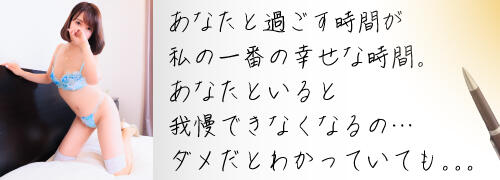 あなたと過ごす時間が
私の一番の幸せな時間。
あなたといると
我慢できなくなるの…
ダメだとわかっていても。。。